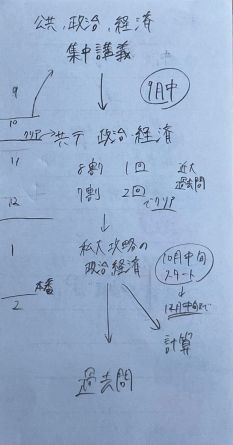 公共,政治,経済
集中講義
9月中
9
10
クリア→共テ 政治経済
11
8割 1回
7割 2回
近大
過去問
でクリア
12
私大攻略の
政治経済
10月中旬
スタート
12月中旬まで
1
本番
2
計算
過去問